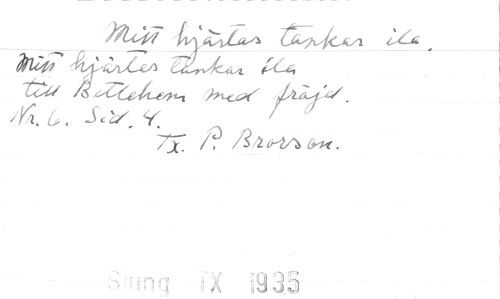 Mitt hjärtas tankar ila.
Mitt hjärtas tankar ila
till Betlehem med fröjd.
Nr. 6. Sid. 4.
Tx. P. Brorson.
Sjung IX 1935